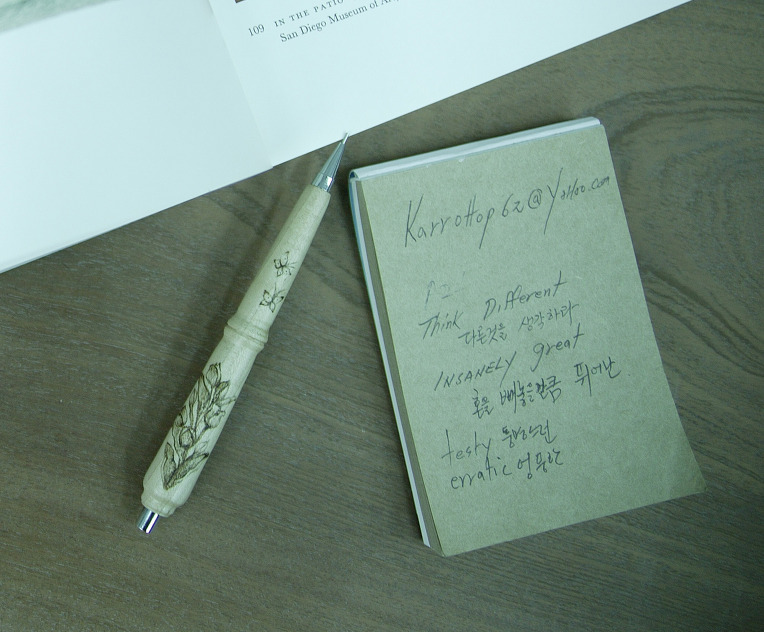 109 IN THE PATIO
San Diego Museum of Art,
KarroHop62@Yahoo.com
Think Different
다른것을 생각하라
INSANELY great
혼을 빼놓을만큼 뛰어난
testy
erratic 엉뚱한